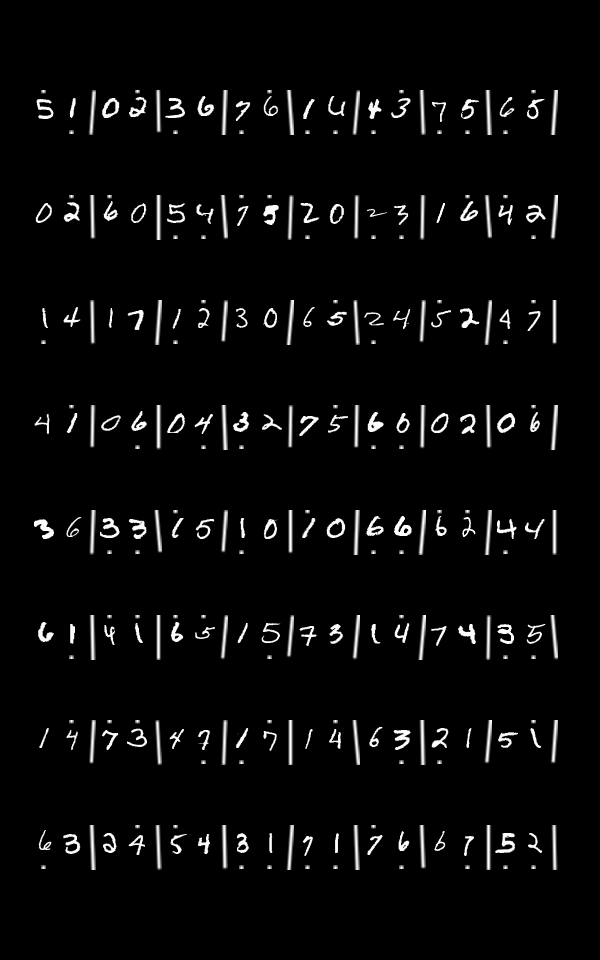 5 1 | 0 2 | 3 6 | 7 6 | 1 4 | 4 3 | 7 5 | 6 5 |
0 2 | 6 0 | 5 4 | 7 5 | 2 0 | 2 3 | 1 6 | 4 2 |
1 4 | 1 7 | 1 2 | 3 0 | 6 5 | 2 4 | 5 2 | 4 7 |
4 1 | 0 6 | 0 4 | 3 2 | 7 5 | 6 6 | 0 2 | 0 6 |
3 6 | 3 3 | 1 5 | 1 0 | 1 0 | 6 6 | 6 2 | 4 4 |
6 1 | 4 1 | 6 5 | 1 5 | 7 3 | 1 4 | 7 4 | 3 5 |
1 4 | 7 3 | 4 7 | 1 7 | 1 4 | 6 3 | 2 1 | 5 1 |
6 3 | 2 4 | 5 4 | 3 1 | 7 1 | 7 6 | 6 7 | 5 2 |